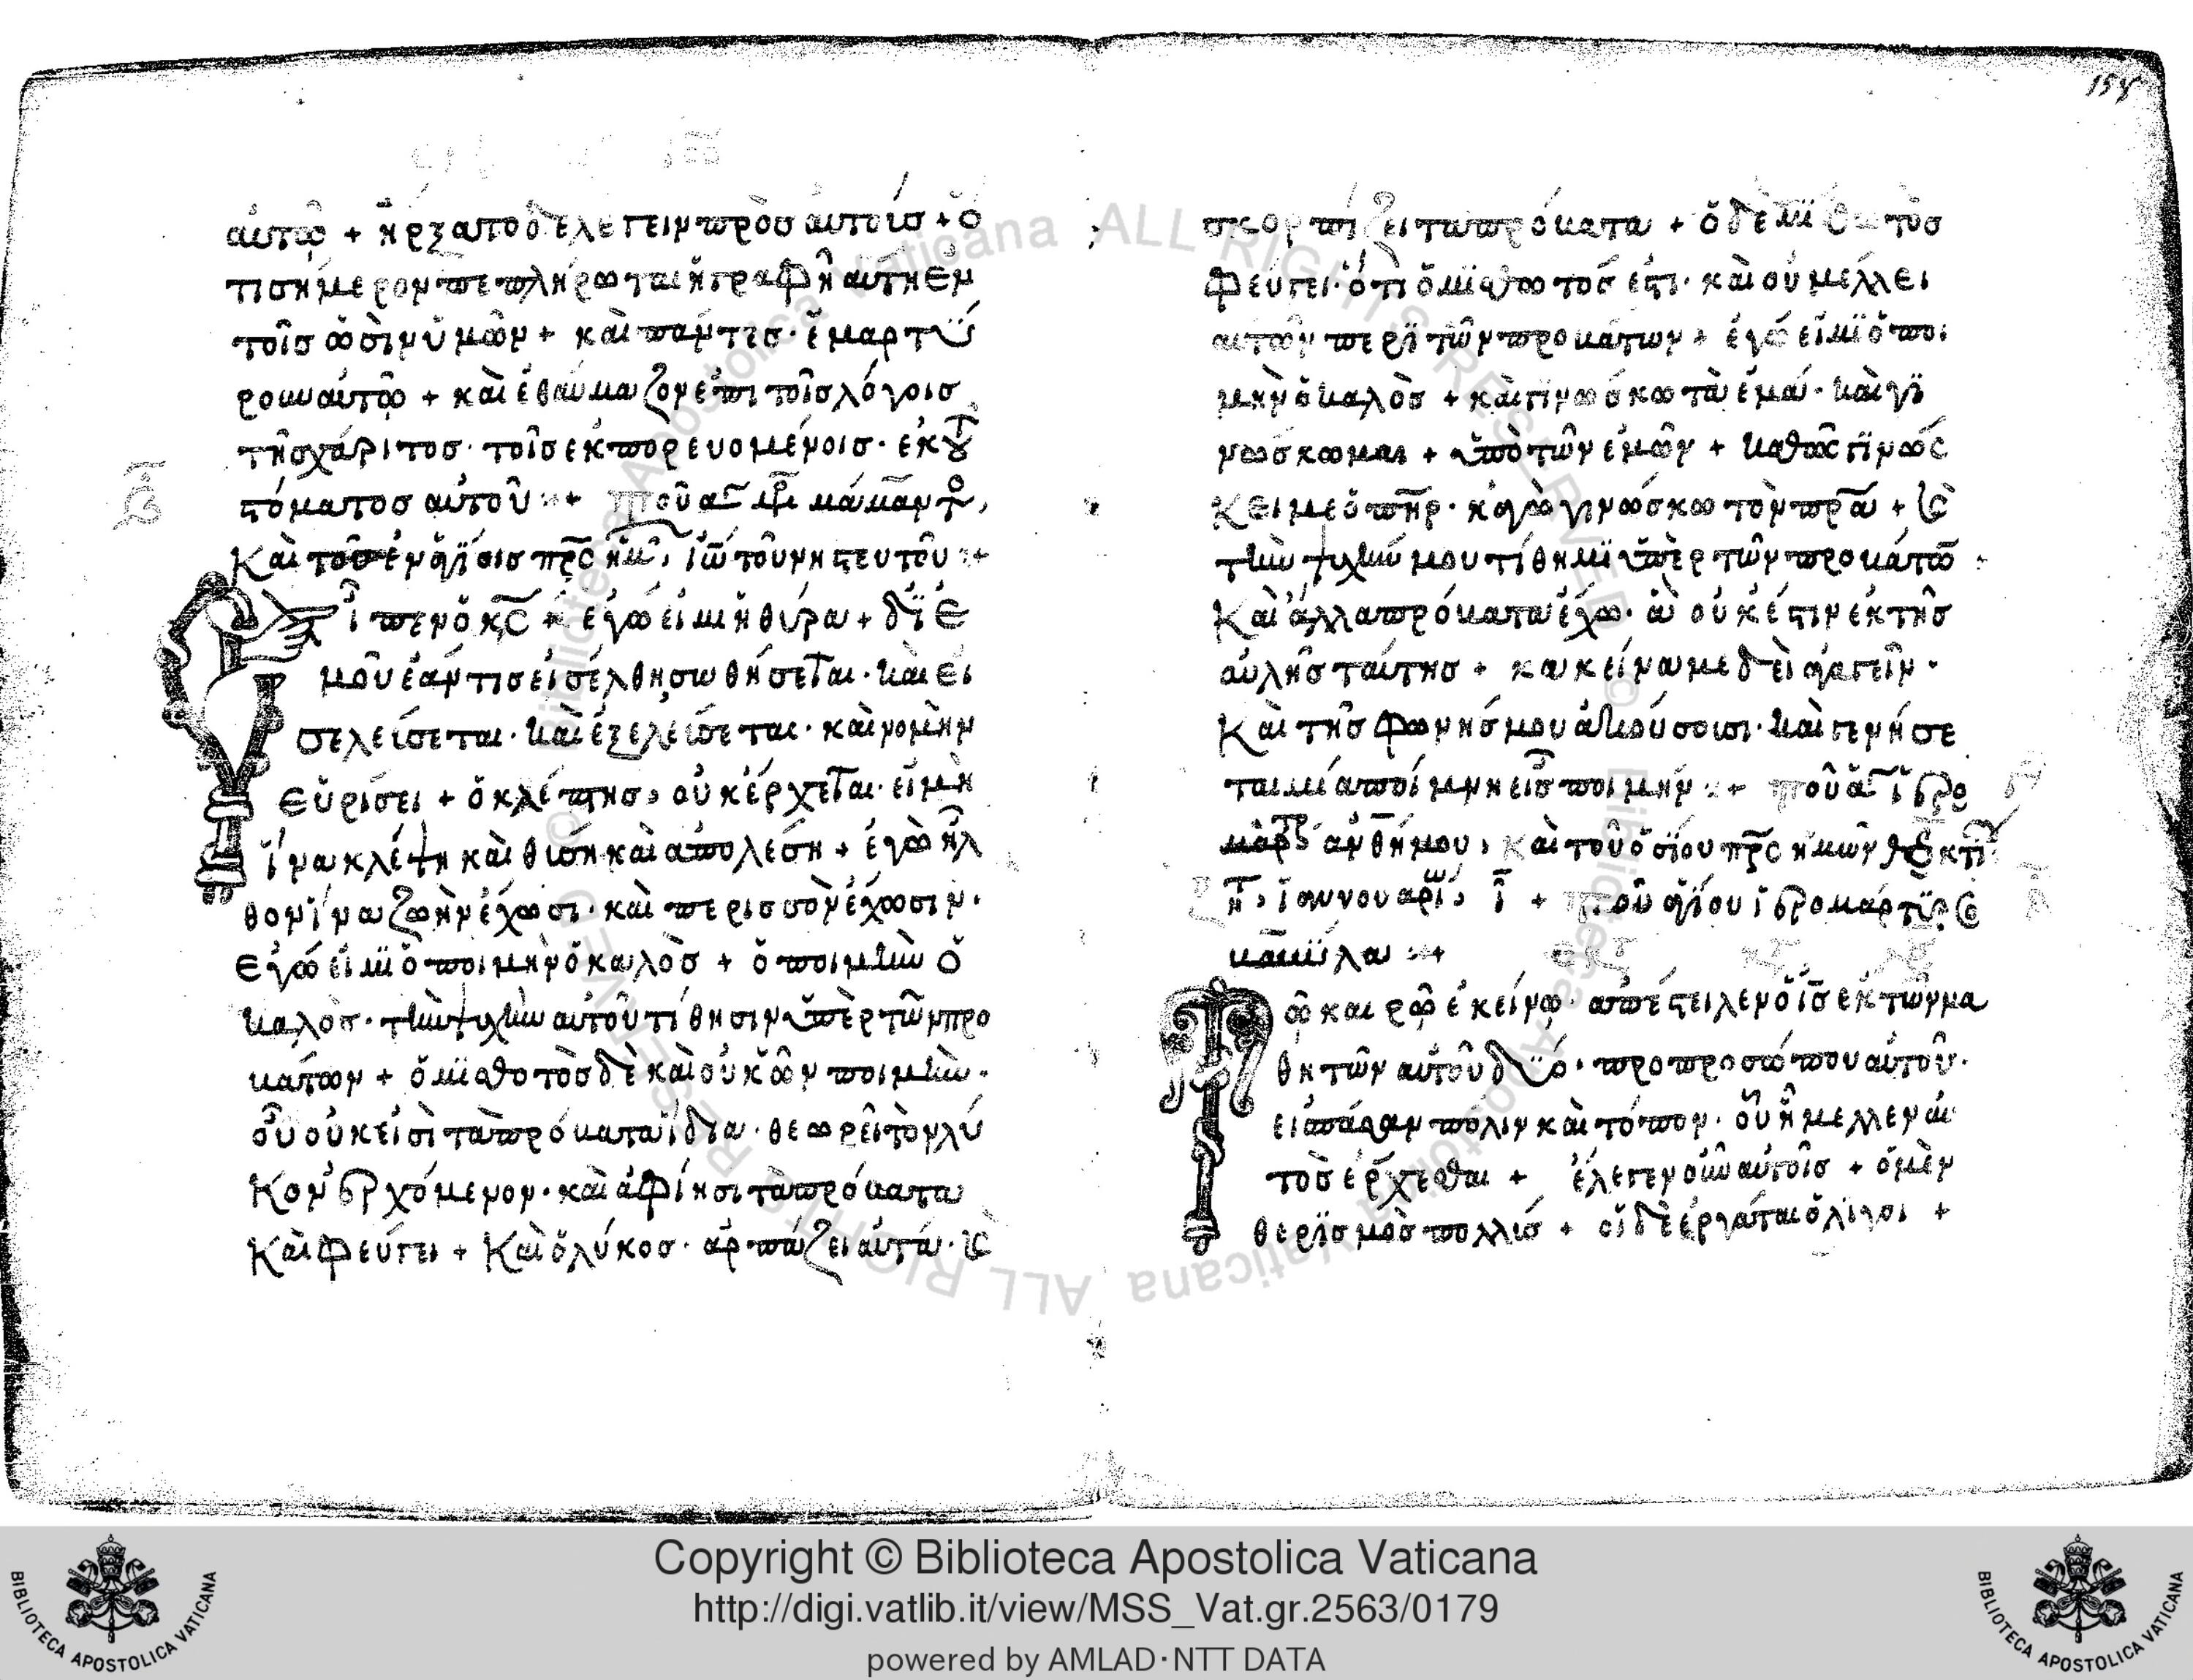 αὐτῷ + ἤρξατο δὲ λέγειν πρὸσ αὐτοὺσ + ὅ
τι σήμερον πεπλήρωται ἡ γραφὴ αὕτη ἐν
τοῖσ ὠσὶν ὑμῶν + καὶ πάντεσ· ἐμαρτύ
ρουν αὐτῶ + καὶ ἐθαύμαζον ἐπὶ τοῖσ λόγοισ
τῆσ χάριτοσ· τοῖσ ἐκπορευομένοισ· ἐκ τοῦ
στόματοσ αὐτοῦ
Καὶ τοῦ ἐν
ἶπεν ὁ κς + ἐγώ εἰμι ἡ θύρα + δι ἐ
μοῦ ἐάν τισ εἰσέλθη, σωθήσεται· καὶ εἰ
σελεύσεται· καὶ ἐξελεύσεται· καὶ νομὴν
εὑρίσει + ὁ κλέπτησ, οὐκ ἔρχεται· εἰ μὴ
ἵνα κλέψη καὶ θύση καὶ ἀπολέση + ἐγὼ ἦλ
θον ἵνα ζωὴν ἔχωσι· καὶ περισσὸν ἔχωσιν·
Ἐγώ εἰμὶ ὁ ποιμὴν ὁ καλὸσ + ὁ ποιμὴν ὁ
καλὸσ· τὴν ψυχὴν αὐτοῦ τίθησιν ὑπὲρ τῶν προ
βάτων + ὁ μισθοτὸσ δὲ καὶ οὐκ ὢν ποιμὴν·
οὗ οὐκ εἰσὶ τὰ πρόβατα ἴδια· θεωρεῖ τὸν λύ
κον ἐρχόμενον· καὶ ἀφίησι τὰ πρόβατα
Καὶ φεύγει + Καὶ ὁ λύκοσ· ἁρπάζει αὐτά· κ
158
σκορπίζει τὰ πρόβατα + ὁ δὲ μισθωτὸσ
φεύγει· ὅτι ὁ μισθωτόσ ἐστι· καὶ οὐ μέλλει
αὐτῶν περὶ τῶν προβάτων + ἐγώ εἰμὶ ὁ ποι
μὴν ὁ καλὸσ + καὶ γινώσκω τὰ ἐμά· καὶ γι
νώσκωμαι + ὑπὸ τῶν ἐμῶν + καθὼς γινώς
κει με ὁ πηρ· κἀγὼ γινώσκω τὸν πρα + κ
τὴν ψυχήν μου τίθημι ὑπὲρ τῶν προβάτω
Καὶ ἄλλα πρόβατα ἔχω· ἃ οὐκ ἔστιν ἐκ τῆσ
αὐλῆσ ταύτησ + κακεῖνα με δεὶ ἀγαγεῖν·
Καὶ τῆσ φωνῆσ μου ἀκούσουσι· καὶ γενήσε
ται μία ποίμνη εἷσ ποιμήν
ἀνθήμου, καὶ τοῦ ὁσίου πρς ἡμῶν
κα
ῷ καιρῷ ἐκείνω· ἀπέστειλεν ὁ ις ἐκ τῶν μα
θητῶν αὐτοῦ δύο· προ προσώπου αὐτοῦ·
εἰσ πάσαν πόλιν καὶ τόπον· οὗ ἤμελλεν αὐ
τὸσ ἔρχεσθαι + ἔλεγεν οὖν αὐτοῖσ + ὁ μὲν
θερισμὸσ πολλύσ + οἱ δὲ ἐργάται ὀλίγοι +
Copyright © Biblioteca Apostolica Vaticana
http://digi.vatlib.it/view/MSS_Vat.gr.2563/0179
powered by AMLAD·NTT DATA
BIBLIOTECA APOSTOLICA VATICANA
BIBLIOTECA APOSTOLICA VATICANA